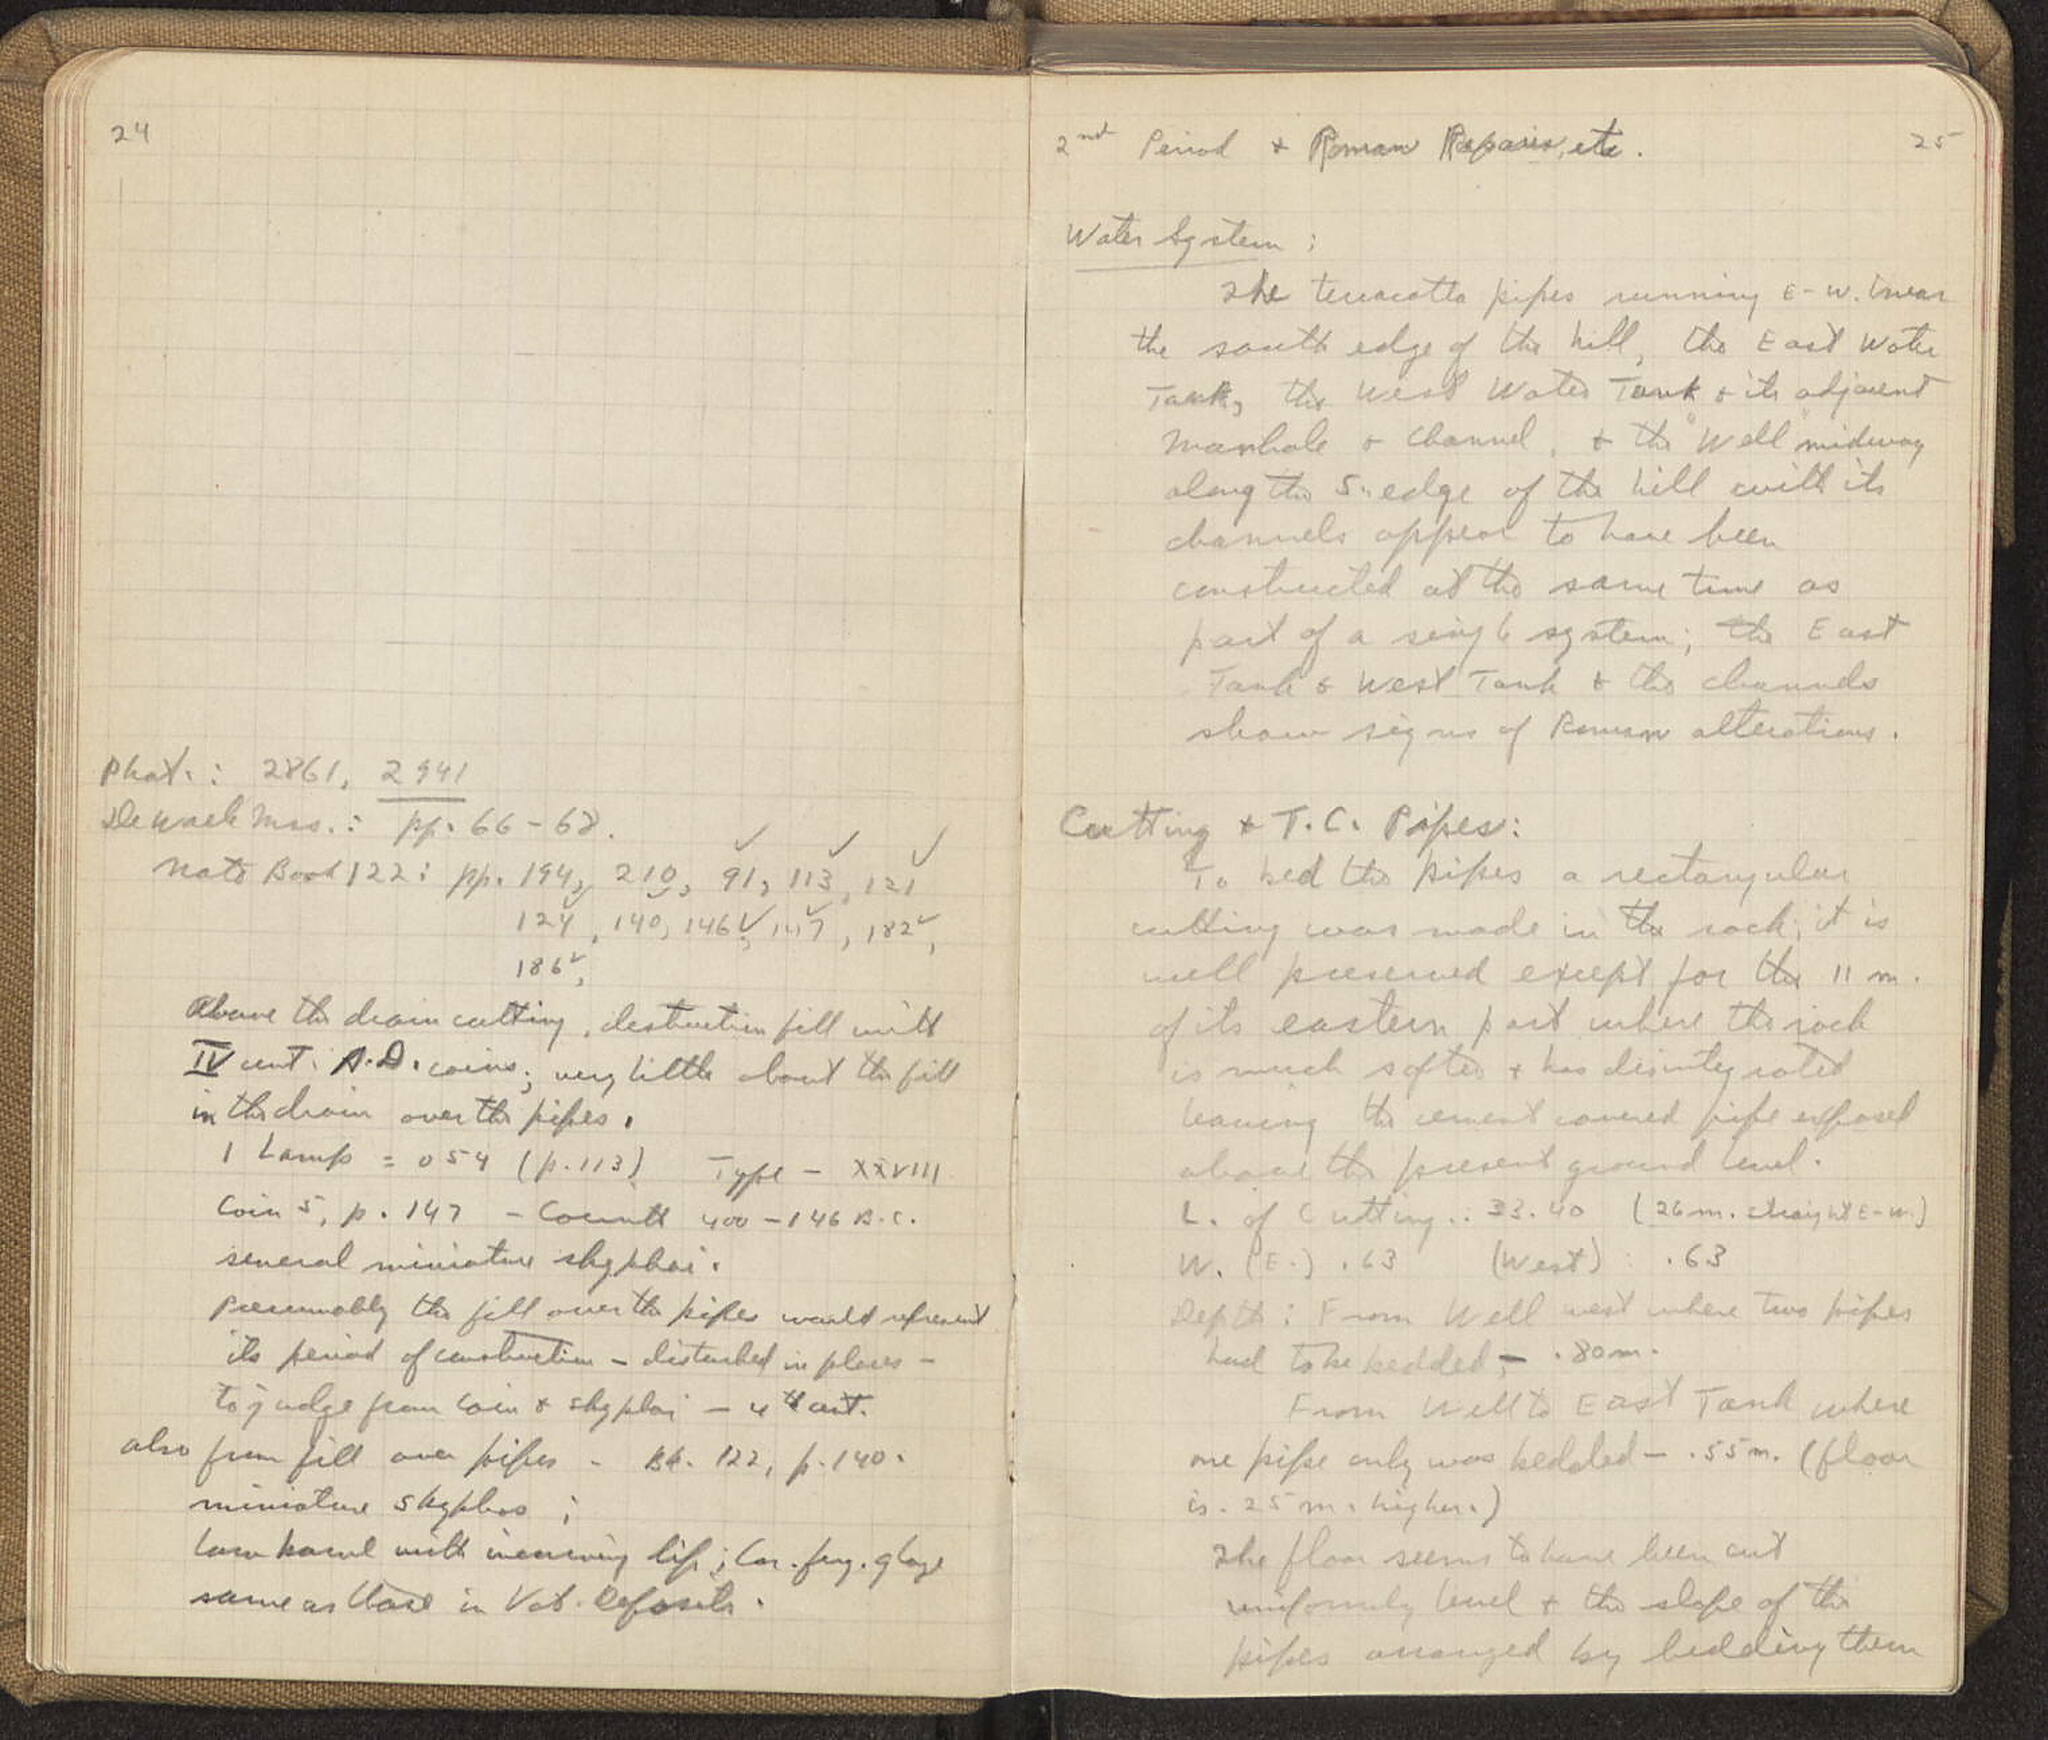 24
Phot. : 2861, 2941
De Waele Mss. : pp. 66-68.
Note Book 122 : pp. 194, 210, 91, 113, 121
124, 140, 146, 147, 182,
186,
Above the drain cutting, destruction fill with
IV cent. A.D. coins; very little about the fill
in the drain over the pipes.
1 Lamp = 054 (p. 113) Type - XXVIII
Coin 5, p. 147 - Corinth 400-146 B.C.
several miniature skyphoi.
Presumably the fill over the pipes would represent
its period of construction - disturbed in places -
to judge from coin & skyphoi - 4th cent.
also from fill over pipes - Bk. 122, p. 140.
miniature skyphos ;
low bowl with incurving lip ; Cor. glaze
same as those in Vot. Deposits.
2nd Period & Roman Repairs, etc. 25
Water System :
The terracotta pipes running E-W. (near
the south edge of the hill, the East Water
Tank, the West Water Tank & its adjacent
Manhole & Channel, & the "Well" midway
along the S. edge of the hill with its
channels appear to have been
constructed at the same time as
part of a single system; the East
Tank & West Tank & the channels
show signs of Roman alterations.
Cutting & T.C. Pipes:
To bed the pipes a rectangular
cutting was made in the rock; it is
well preserved except for the 11 m.
of its eastern part where the rock
is much softer & has disintegrated
leaving the cement covered pipe exposed
above the present ground level.
L. of Cutting : 33.40 (26 m. straight E-W.)
W. (E.) .63 (West) : .63
Depth : From Well west where two pipes
had to be bedded - .80 m.
From Well to East Tank where
one pipe only was bedded - .55 m. (floor
is .25 m. higher.)
The floor seems to have been cut
uniformly level & the slope of the
pipes arranged by bedding them